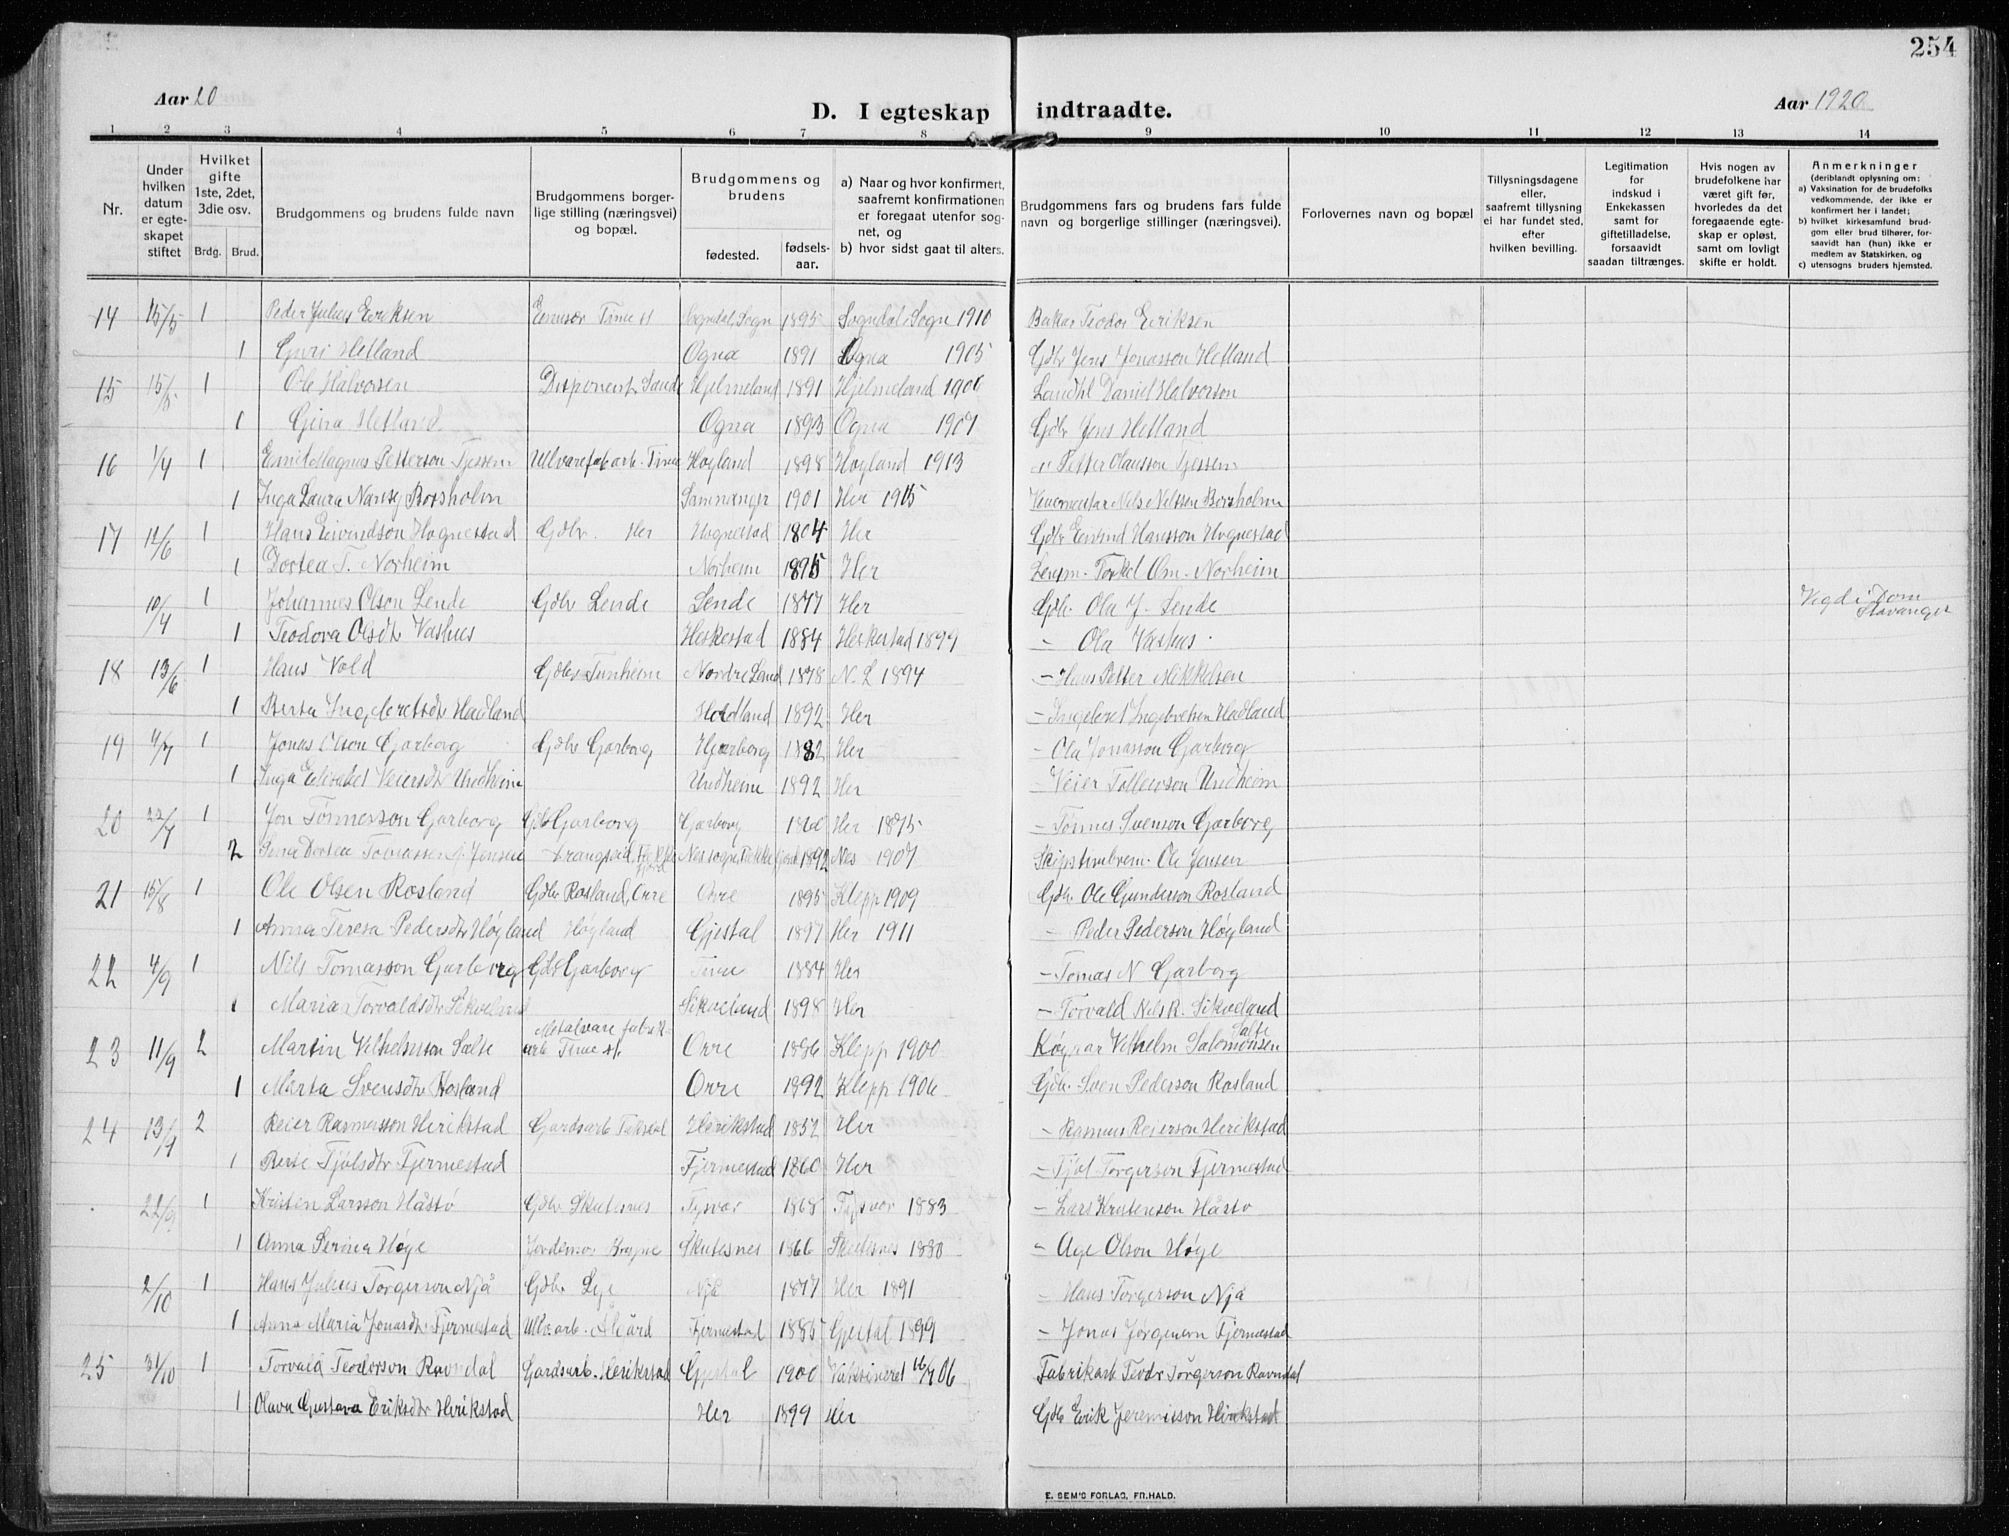 254
Aar 20
D. I egteskap indtraadte.
Aar 1920
1 2 3 4 5 6 7 8 9 10 11 12 13 14
Nr.
Under hvilken datum er egteskapet stiftet
Hvilket gifte 1ste, 2det, 3die osv.
Brdg. Brud.
Brudgommens og brudens fulde navn
Brudgommens borgerlige stilling (næringsvei) og bopæl.
Brudgommens og brudens
fødested. fødselsaar.
a) Naar og hvor konfirmert, saafremt konfirmationen er foregaat utenfor sognet, og
b) hvor sidst gaat til alters.
Brudgommens fars og brudens fars fulde navn og borgerlige stillinger (næringsvei).
Forlovernes navn og bopæl
Tillysningsdagene eller, saafremt tillysning ei har fundet sted, efter hvilken bevilling.
Legitimation for indskud i Enkekassen samt for giftetilladelse, forsaavidt saadan tiltrænges.
Hvis nogen av brudefolkene har været gift før, hvorledes da det foregaaende egteskap er opløst, samt om lovligt skifte er holdt.
Anmerkninger (deriblandt oplysning om:
a) Vaksination for de brudefolks vedkommende, der ikke er konfirmert her i landet;
b) hvilket kirkesamfund brudgom eller brud tilhører, forsaavidt han (hun) ikke er medlem av Statskirken, og
c) utensogns bruders hjemsted.
14 15/5 1 Peder Julius Eriksen Time st Sogndal, Sogn 1895 Sogndal, Sogn 1910 Teodor Eriksen
1 Guri Hetland Ogna 1891 Ogna 1905 Gdbr Jens Jonasson Hetland
15 15/5 1 Ole Halvorsen Disponent, Sande Hjelmeland 1891 Hjelmeland 1906 Landhl Daniel Halvorson
1 Gina Hetland Ogna 1893 Ogna 1907 Gdbr Jens Hetland
16 1/4 1 Emil Magnus Petterson Tjessem Ulvarefab arb. Time Høyland 1898 Høyland 1913 " Petter Olausson Tjessem
1 Inga Laura Nancy Borsholm Samnanger 1901 Her 1915 Nils Nilssen Borsholm
17 12/6 1 Hans Eivindson Hognestad Gdbr. Her Hognestad 1894 Her Gdbr Eivind Hansson Hognestad
1 Dortea T. Norheim Norheim 1895 Her Lensm. Torkel Om. Norheim
10/4 1 Johannes Olson Lende Gdbr Lende Lende 1877 Her Gdb. Ola J. Lende Vigd i Dom Stavanger
1 Teodora Olsdtr Vashus Heskestad 1884 Heskestad 1899 – Ola Vashus
18 13/6 1 Hans Vold Gdbr Tunheim Nordre Land 1878 N. L 1894 – Hans Petter Mikkelsen
1 Berta Ingebretsdtr Hadland Hadland 1892 Her – Ingebret Ingebretsen Hadland
19 4/7 1 Jonas Olson Garborg Gdbr Garborg Garborg 1882 Her – Ola Jonasson Garborg
1 Inga Elisabet Veiersdtr Undheim Undheim 1892 Her – Veier Tollevson Undheim
20 22/7 1 Jon Tønneson Garborg Gdb Garborg Garborg Her 1875 – Tønnes Svenson Garborg
2 Dortea Tobiassen f. Jensen Nes sogn, Flekkefjord 1892 Nes 1907 Skipstimbrem. Ole Jensen
21 15/8 1 Ole Olsen Rosland Gdbr Rosland, Orre Orre 1895 Klepp 1909 Gdbr Ole Gunderson Rosland
1 Anna Teresa Pedersdtr Høyland Høyland Gjestal 1897 Her 1911 – Peder Pederson Høyland
22 4/9 1 Nils Tomasson Garborg Gdb Garborg Time 1884 Her – Tomas N Garborg
1 Maria Torvaldsdtr Sikveland Sikveland 1898 Her – Torvald Nils R. Sikveland
23 11/9 2 Martin Vilhelmson Salte Metalvare fabrik arb Time st. Orre 1886 Klepp 1900 Vilhelm Salomonsen Salte
1 Marta Svensdtr Rosland Orre 1892 Klepp 1906 Gdb. Sven Pederson Rosland
24 13/9 2 Reier Rasmusson Herikstad Gardsarb Herikstad 1852 Her – Rasmus Reierson Herikstad
1 Berte Tjølsdtr Fjermestad Fjermestad 1860 Her – Tjøl Torgerson Fjermestad
22/9 1 Kristen Larsson Håstø Gdbr Skutesnes Tysvær 1868 Tysvær 1883 – Lars Kristenson Håstø
1 Anna Serina Høge Jordemor Bryne Skutesnes 1866 Skutesnes 1880 – Age Olson Høge
2/10 1 Hans Julius Torgerson Njå Gdbr Lye Njå 1877 Her 1891 – Hans Torgerson Njå
1 Anna Maria Jonasdtr Fjermestad Ulvarb. Ålgård Fjermestad 1885 Gjestal 1899 – Jonas Jørgensen Fjermestad
25 31/10 1 Torvald Teodorson Ravndal Gardsarb. Herikstad Gjestal 1900 Vaksineret 16/7 06 Fabrikarb Teodr Torgerson Ravndal
1 Olava Gustava Eriksdtr Herikstad Her 1899 Her Gdb Erik Jeremiasson Herikstad
E. SEM'S FORLAG, FR.HALD.